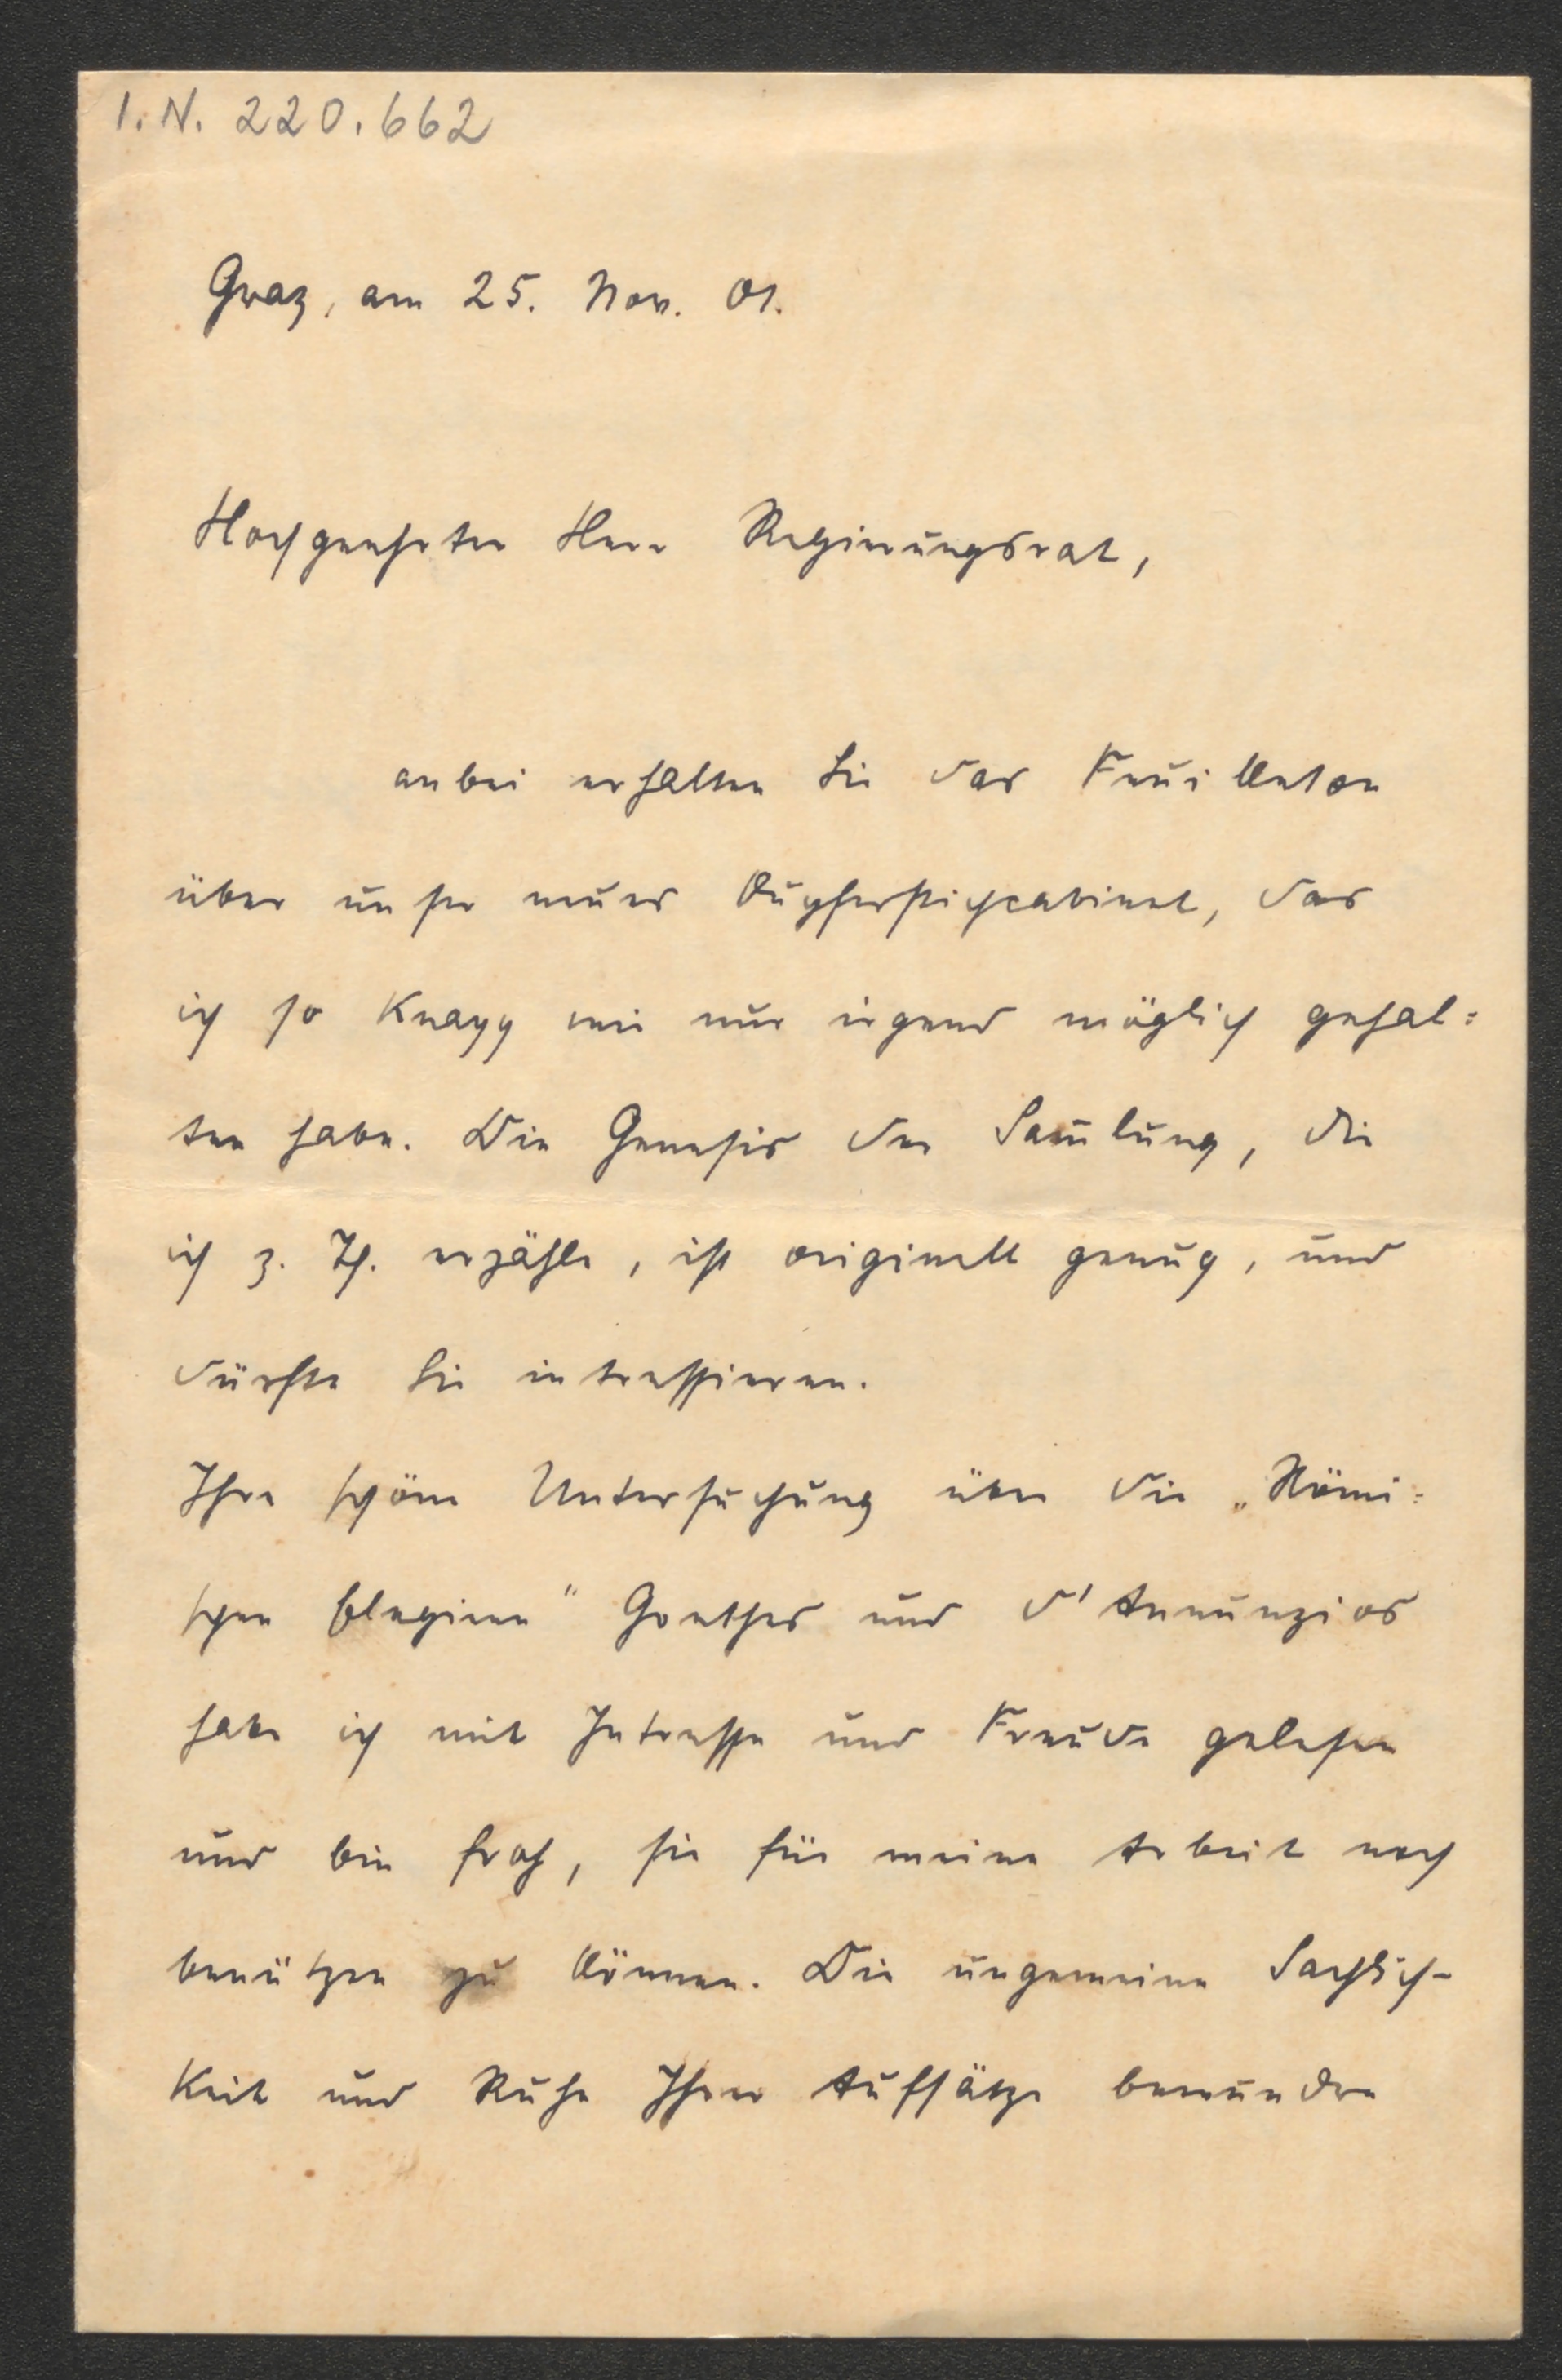 I.N. 220.662
Graz, am 25. Nov. 01.
Hochgeehrter Herr Regierungsrat,
anbei erhalten Sie das Feuilleton
über unser neues Kupferstichcabinet, das
ich so knapp wie nur irgend möglich gehal=
ten habe. Die Genesis der Sam̄lung, die
ich z. Th. erzähle, ist originell genug, und
dürfte Sie intressieren.
Ihre schöne Untersuchung über die „Römi=
schen Elegieen" Goethes und d'Annunzios
habe ich mit Intresse und Freude gelesen
und bin froh, sie für meine Arbeit noch
benützen zu können. Die ungemeine Sachlich-
keit und Ruhe Ihrer Aufsätze bewundre